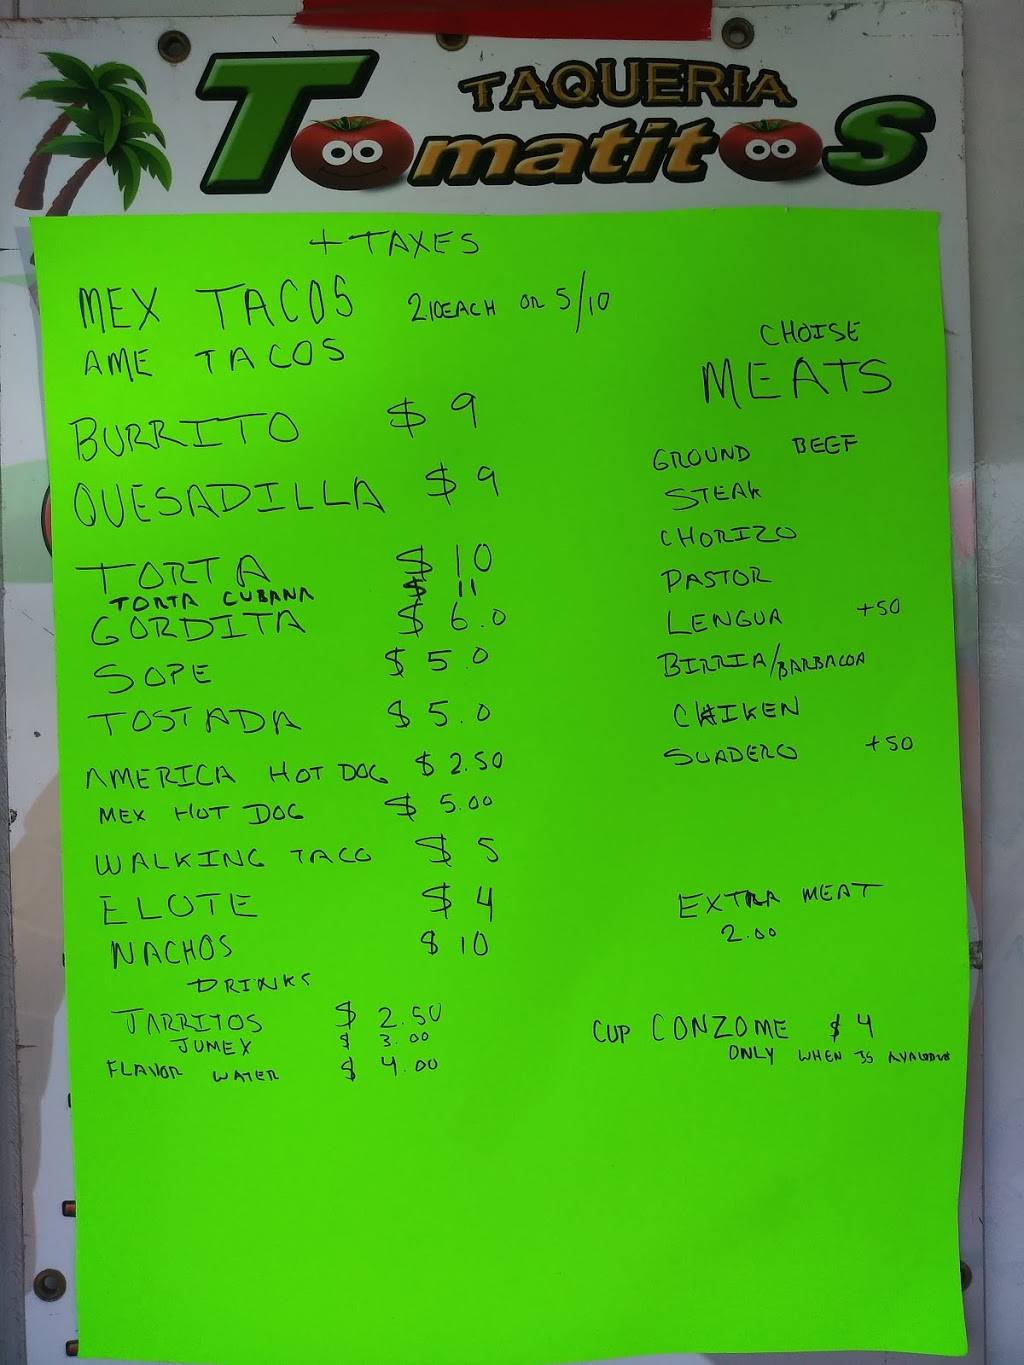 TAQUERIA
Tomatitos
+ TAXES
MEX TACOS 2.10 EACH OR 5/10
AME TACOS
BURRITO $ 9
QUESADILLA $ 9
TORTA $ 10
TORTA CUBANA $ 11
GORDITA $ 6.0
SOPE $ 5.0
TOSTADA $ 5.0
AMERICA HOT DOG $ 2.50
MEX HOT DOG $ 5.00
WALKING TACO $ 5
ELOTE $ 4
NACHOS $ 10
DRINKS
JARRITOS $ 2.50
JUMEX $ 3.00
FLAVOR WATER $ 4.00
CHOISE
MEATS
GROUND BEEF
STEAK
CHORIZO
PASTOR
LENGUA +50
BIRRIA/BARBACOA
CHIKEN
SUADERO +50
EXTRA MEAT
2.00
CUP CONZOME $ 4
ONLY WHEN IS